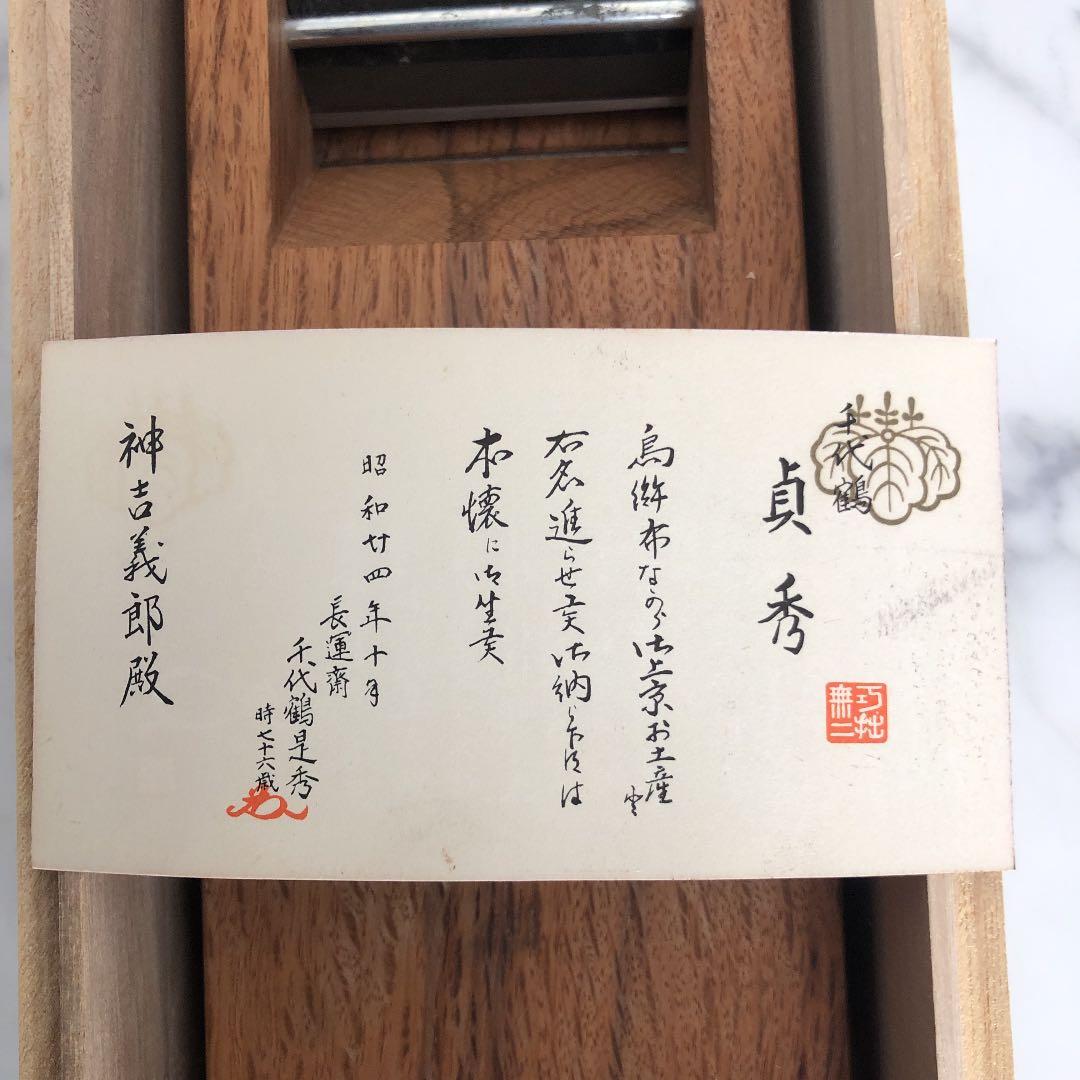 千代鶴
貞秀
巧拙無二
烏滸布ながら御上京お土産
右名進らせ候御納め下さらば
本懐に御座候
昭和廿四年十月
長運斎
千代鶴是秀
時七十六歳
神吉義郎殿